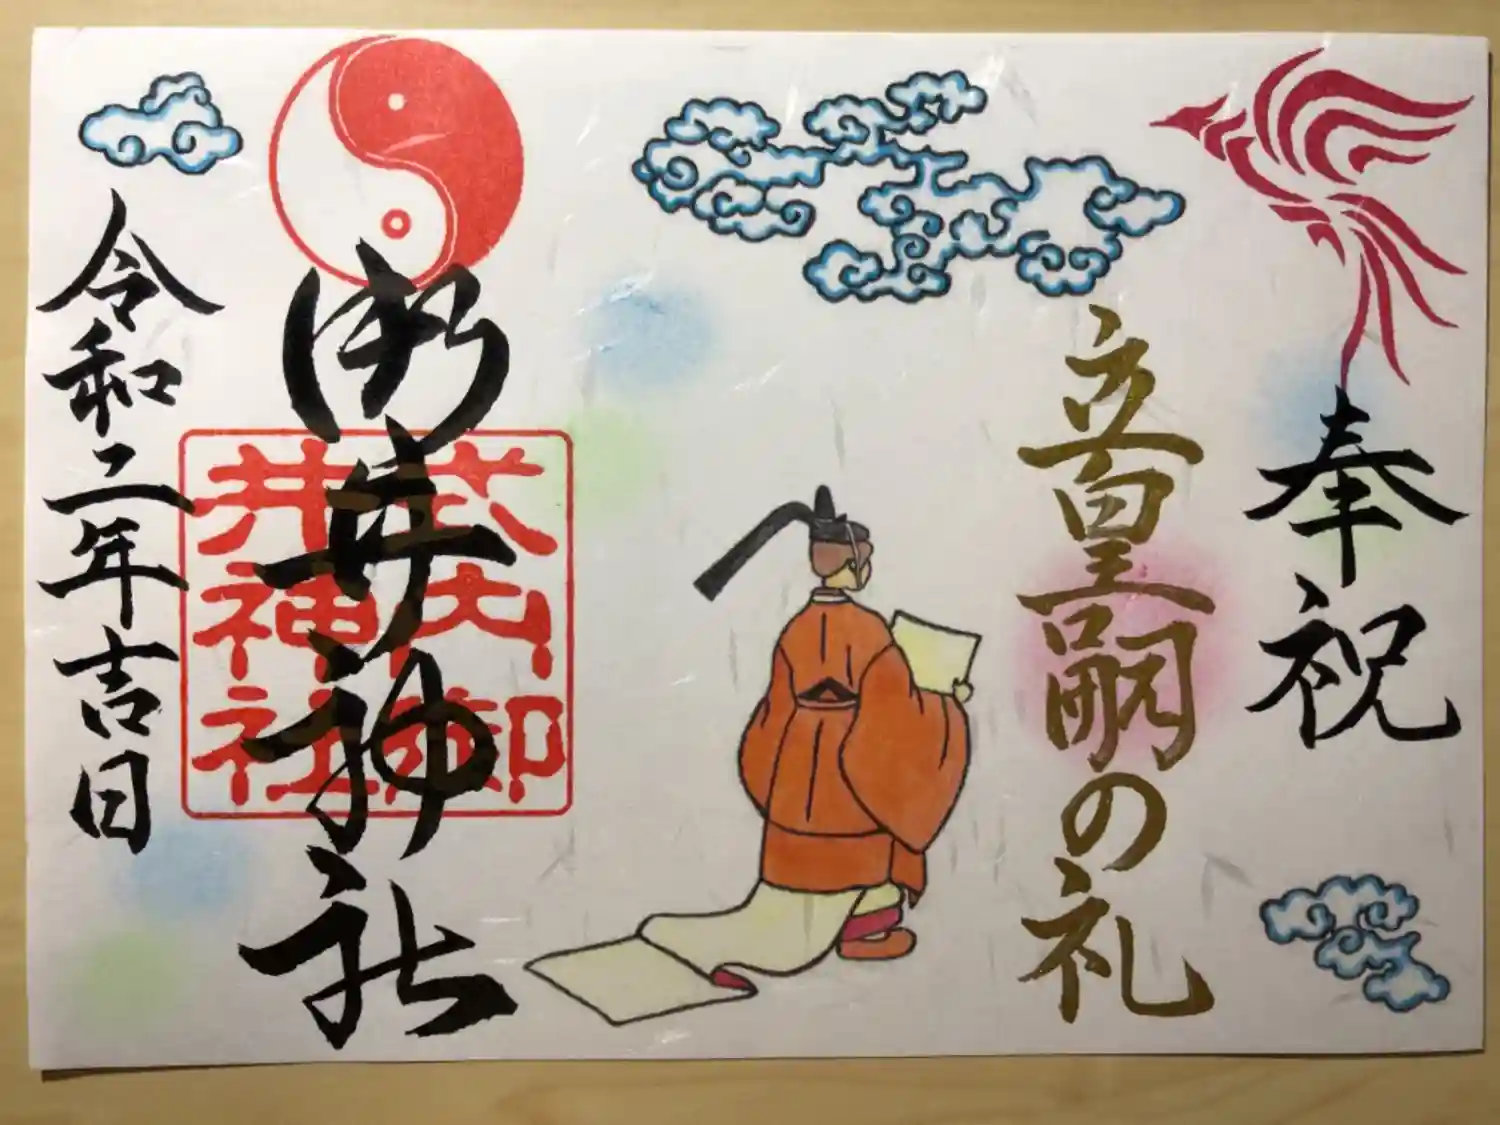 奉祝
立皇嗣の礼
御井神社
式内御
井神社
令和二年吉日